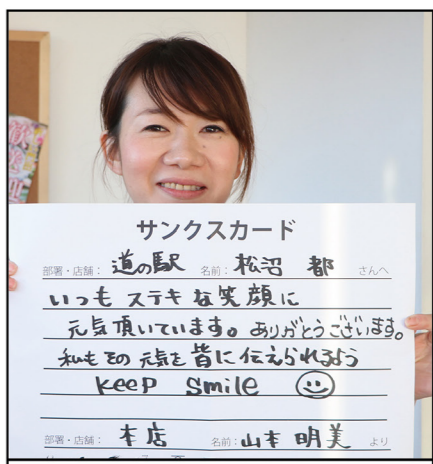 サンクスカード
部署・店舗： 道の駅 名前： 松沼 都 さんへ
いつも ステキな笑顔に
元気頂いています。ありがとうございます。
私もその元気を皆に伝えられるよう
keep smile
部署・店舗： 本店 名前： 山本 明美 より